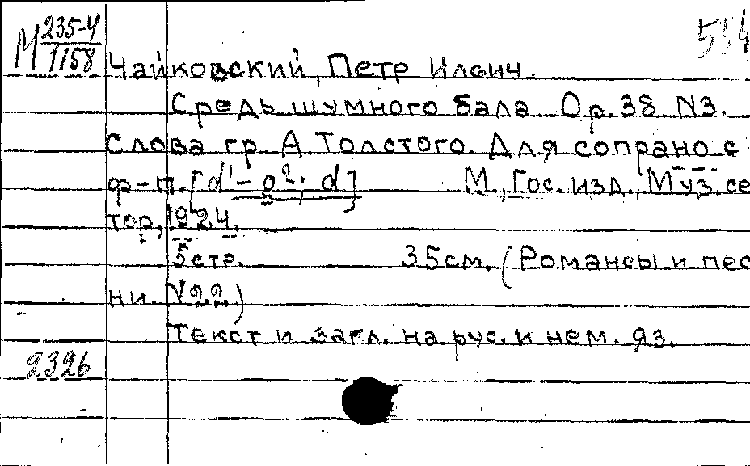 М 235-4
1158
Чайковский, Петр Илвич.
Средь шумного бала. Ор. 38 N3.
Слова гр. А Толстого. Для сопрано с
ф-п. [d¹-g²; d] М., Гос. изд. Муз. се
тор, 1924.
5 стр. 35 см. (Романсы и пес
ни. N 22.)
Текст и загл. на рус. и нем. яз.
2326